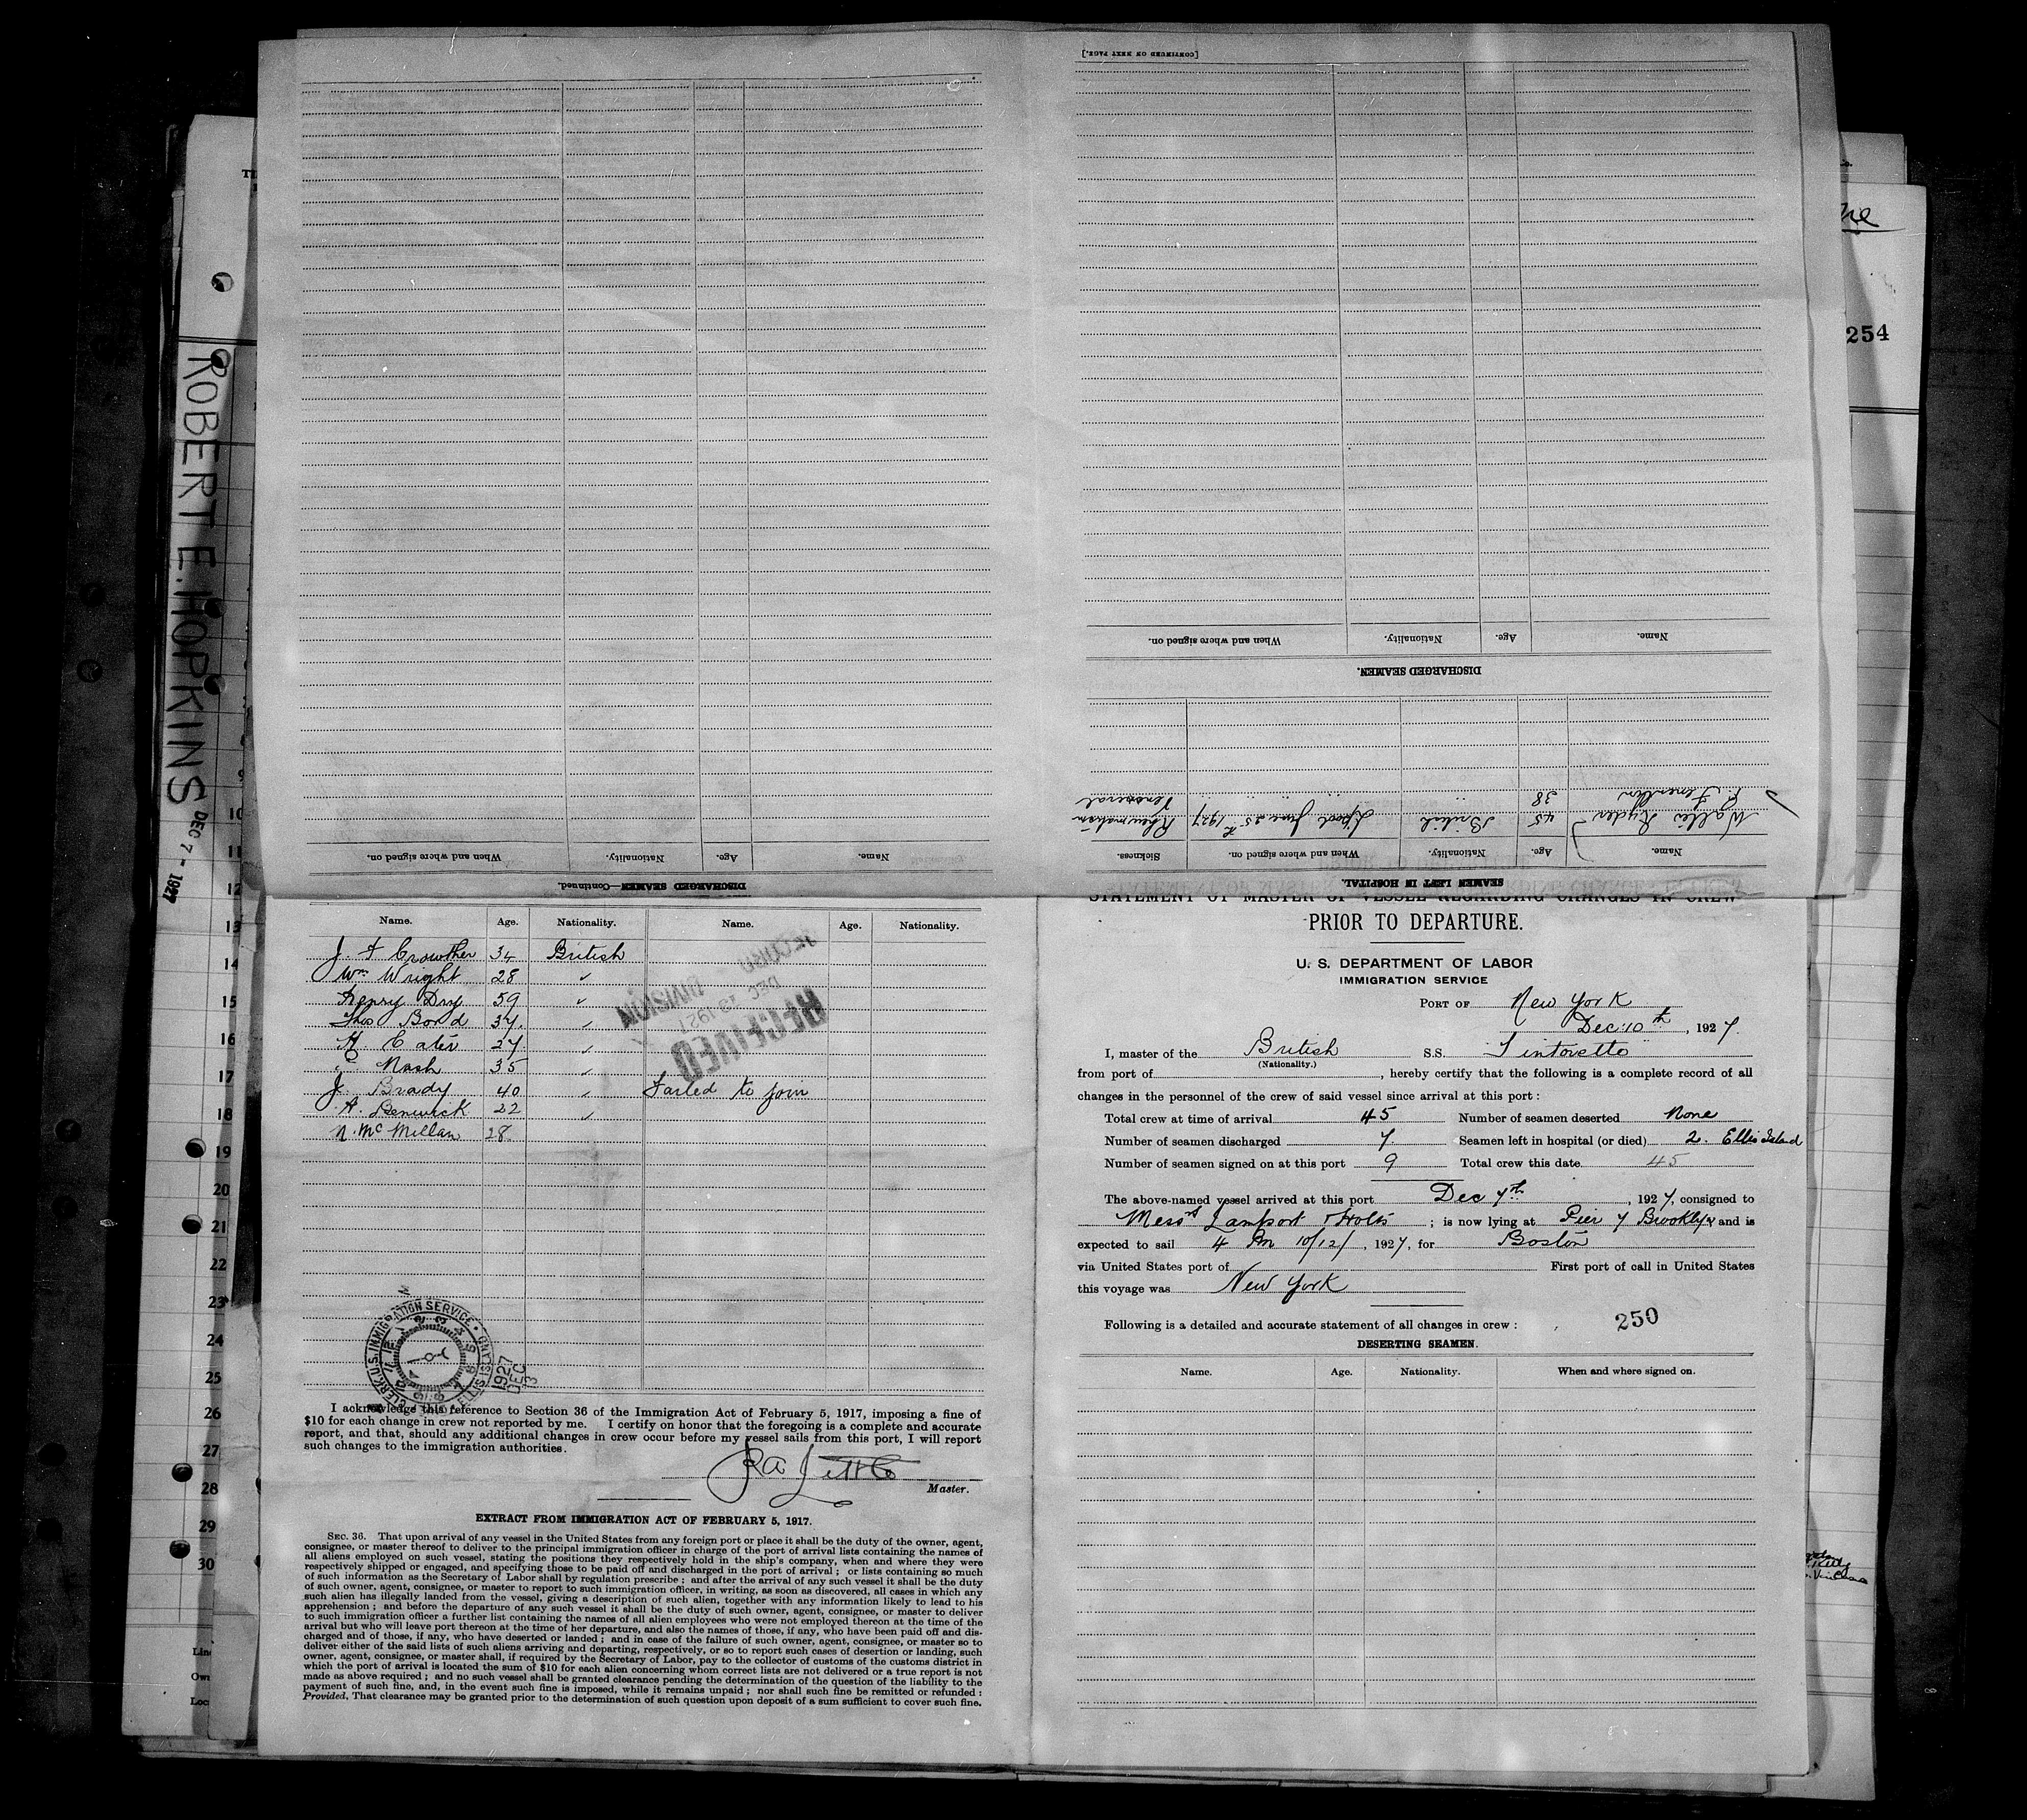 [CONTINUED ON NEXT PAGE.]
254
ROBERT E. HOPKINS DEC 7 - 1927
When and where signed on. Nationality. Age. Name.
DISCHARGED SEAMEN.
38
Wallis Ryder 45 British Lpool June 25th 1927 Rheumatism
Sickness. When and where signed on. Nationality. Age. Name.
SEAMEN LEFT IN HOSPITAL.
When and where signed on. Nationality. Age. Name.
DISCHARGED SEAMEN—Continued.
9
10
11
12
13
14
15
16
17
18
19
20
21
22
23
24
25
26
27
28
29
30
Name. Age. Nationality. Name. Age. Nationality.
J. F Crowther 34 British
Wm Wright 28 ✓
Henry Dry 59 ✓
Thos Bond 37. ✓
H. Cater 27. ✓
Nash 35 ✓
J. Brady 40 ✓ Failed to join
A. Benwick 22 ✓
N. McMillan 28.
RECEIVED
DEC 13 1927
RECORD DIVISION
CLERK, U.S. IMMIGRATION SERVICE • ELLIS ISLAND
1927
DEC
13
I acknowledge this reference to Section 36 of the Immigration Act of February 5, 1917, imposing a fine of
$10 for each change in crew not reported by me. I certify on honor that the foregoing is a complete and accurate
report, and that, should any additional changes in crew occur before my vessel sails from this port, I will report
such changes to the immigration authorities.
Master.
EXTRACT FROM IMMIGRATION ACT OF FEBRUARY 5, 1917.
SEC. 36. That upon arrival of any vessel in the United States from any foreign port or place it shall be the duty of the owner, agent,
consignee, or master thereof to deliver to the principal immigration officer in charge of the port of arrival lists containing the names of
all aliens employed on such vessel, stating the positions they respectively hold in the ship's company, when and where they were
respectively shipped or engaged, and specifying those to be paid off and discharged in the port of arrival ; or lists containing so much
of such information as the Secretary of Labor shall by regulation prescribe ; and after the arrival of any such vessel it shall be the duty
of such owner, agent, consignee, or master to report to such immigration officer, in writing, as soon as discovered, all cases in which any
such alien has illegally landed from the vessel, giving a description of such alien, together with any information likely to lead to his
apprehension ; and before the departure of any such vessel it shall be the duty of such owner, agent, consignee, or master to deliver
to such immigration officer a further list containing the names of all alien employees who were not employed thereon at the time of the
arrival but who will leave port thereon at the time of her departure, and also the names of those, if any, who have been paid off and dis-
charged and of those, if any, who have deserted or landed ; and in case of the failure of such owner, agent, consignee, or master so to
deliver either of the said lists of such aliens arriving and departing, respectively, or so to report such cases of desertion or landing, such
owner, agent, consignee, or master shall, if required by the Secretary of Labor, pay to the collector of customs of the customs district in
which the port of arrival is located the sum of $10 for each alien concerning whom correct lists are not delivered or a true report is not
made as above required ; and no such vessel shall be granted clearance pending the determination of the question of the liability to the
payment of such fine, and, in the event such fine is imposed, while it remains unpaid ; nor shall such fine be remitted or refunded :
Provided, That clearance may be granted prior to the determination of such question upon deposit of a sum sufficient to cover such fine.
STATEMENT OF MASTER OF VESSEL REGARDING CHANGES IN CREW
PRIOR TO DEPARTURE.
U. S. DEPARTMENT OF LABOR
IMMIGRATION SERVICE
PORT OF New York
Dec: 10th, 1927.
I, master of the British S.S. "Tintoretto"
(Nationality.)
from port of , hereby certify that the following is a complete record of all
changes in the personnel of the crew of said vessel since arrival at this port :
Total crew at time of arrival 45 Number of seamen deserted None
Number of seamen discharged 7. Seamen left in hospital (or died) 2. Ellis Island
Number of seamen signed on at this port 9 Total crew this date 45
The above-named vessel arrived at this port Dec 7th, 1927, consigned to
Messrs Lamport & Holts ; is now lying at Pier 7 Brooklyn and is
expected to sail 4 Pm 10/12/, 1927, for Boston
via United States port of First port of call in United States
this voyage was New York
250
Following is a detailed and accurate statement of all changes in crew :
DESERTING SEAMEN.
Name. Age. Nationality. When and where signed on.